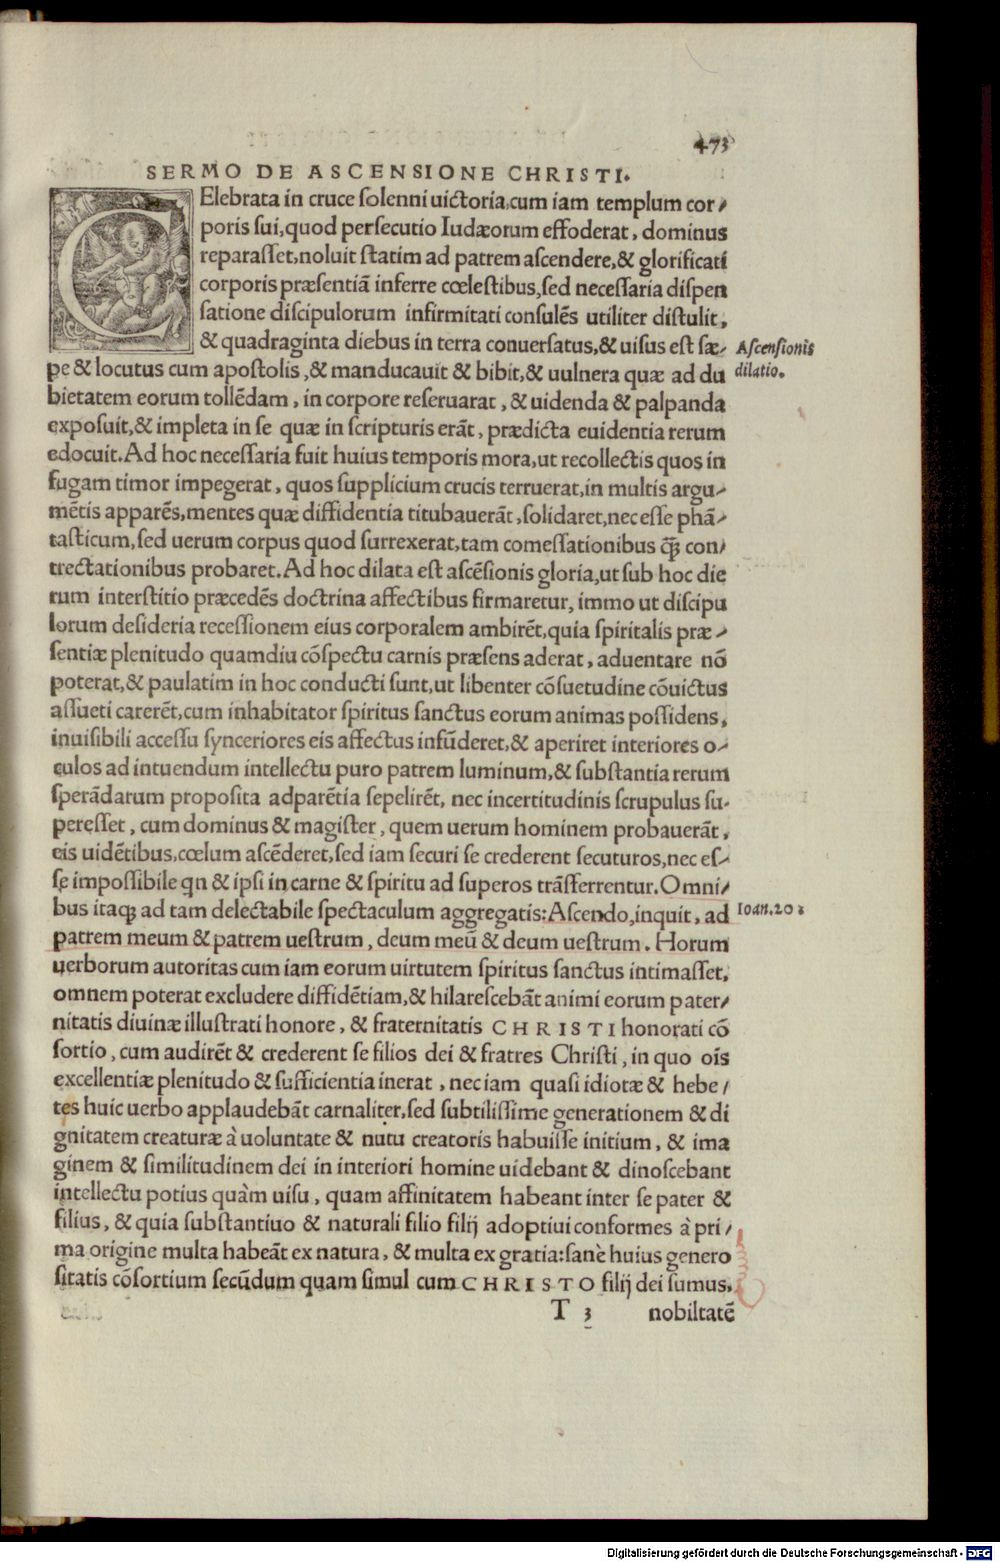 473
SERMO DE ASCENSIONE CHRISTI.
CElebrata in cruce ſolenni uictoria,cum iam templum cor⸗
poris ſui,quod perſecutio Iudæorum effoderat, dominus
reparaſſet,noluit ſtatim ad patrem aſcendere,& glorificati
corporis præſentiã inferre cœleſtibus,ſed neceſſaria diſpen
ſatione diſcipulorum infirmitati conſulẽs utiliter diſtulit,
& quadraginta diebus in terra conuerſatus,& uiſus eſt ſæ⸗
Aſcenſionis
pe & locutus cum apoſtolis ,& manducauit & bibit,& uulnera quæ ad du
dilatio.
bietatem eorum tollẽdam , in corpore reſeruarat , & uidenda & palpanda
expoſuit,& impleta in ſe quæ in ſcripturis erãt , prædicta euidentia rerum
edocuit.Ad hoc neceſſaria fuit huius temporis mora,ut recollectis quos in
fugam timor impegerat , quos ſupplicium crucis terruerat,in multis argu⸗
mẽtis apparẽs,mentes quæ diffidentia titubauerãt ,ſolidaret,nec eſſe phã⸗
taſticum,ſed uerum corpus quod ſurrexerat,tam comeſſationibus q̃ꝫ con⸗
trectationibus probaret.Ad hoc dilata eſt aſcẽſionis gloria,ut ſub hoc die
rum interſtitio præcedẽs doctrina affectibus firmaretur, immo ut diſcipu
lorum deſideria receſſionem eius corporalem ambirẽt,quia ſpiritalis præ⸗
ſentiæ plenitudo quamdiu cõſpectu carnis præſens aderat , aduentare nõ
poterat,& paulatim in hoc conducti ſunt,ut libenter cõſuetudine cõuictus
aſſueti carerẽt,cum inhabitator ſpiritus ſanctus eorum animas poſſidens,
inuiſibili acceſſu ſynceriores eis affectus infũderet,& aperiret interiores o⸗
culos ad intuendum intellectu puro patrem luminum,& ſubſtantia rerum
ſperãdarum propoſita adparẽtia ſepelirẽt, nec incertitudinis ſcrupulus ſu⸗
pereſſet , cum dominus & magiſter , quem uerum hominem probauerãt ,
eis uidẽtibus,cœlum aſcẽderet,ſed iam ſecuri ſe crederent ſecuturos,nec eſ⸗
ſe impoſſibile qn & ipſi in carne & ſpiritu ad ſuperos trãſferrentur.Omni⸗
bus itaqꝫ ad tam delectabile ſpectaculum aggregatis:Aſcendo,inquit, ad
Ioan.20.
patrem meum & patrem ueſtrum , deum meũ & deum ueſtrum . Horum
uerborum autoritas cum iam eorum uirtutem ſpiritus ſanctus intimaſſet,
omnem poterat excludere diffidẽtiam,& hilareſcebãt animi eorum pater⸗
nitatis diuinæ illuſtrati honore , & fraternitatis CHRISTI honorati cõ
ſortio , cum audirẽt & crederent ſe filios dei & fratres Chriſti , in quo oĩs
excellentiæ plenitudo & ſufficientia inerat , nec iam quaſi idiotæ & hebe⸗
tes huic uerbo applaudebãt carnaliter,ſed ſubtiliſſime generationem & di
gnitatem creaturæ à uoluntate & nutu creatoris habuiſſe initium , & ima
ginem & ſimilitudinem dei in interiori homine uidebant & dinoſcebant
intellectu potius quàm uiſu , quam affinitatem habeant inter ſe pater &
filius , & quia ſubſtantiuo & naturali filio filij adoptiui conformes à pri⸗
ma origine multa habeãt ex natura , & multa ex gratia:ſanè huius genero
ſitatis cõſortium ſecũdum quam ſimul cum CHRISTO filij dei ſumus.
T 3 nobiltatẽ
Digitalisierung gefördert durch die Deutsche Forschungsgemeinschaft - DFG